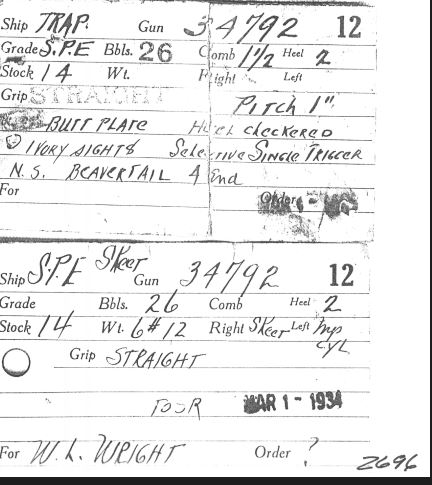 Ship TRAP. Gun 34792 12
Grade S.P.E Bbls. 26 Comb 1 1/2 Heel 2
Stock 14 Wt. Right Left
Grip STRAIGHT Pitch 1"
BUTT PLATE Heel checkered
2 IVORY SIGHTS Selective Single TRIGGER
N. S. BEAVERTAIL 4 End
For Order
Ship S.P.E Skeet Gun 34792 12
Grade Bbls. 26 Comb Heel 2
Stock 14 Wt. 6# 12 Right Skeet Left Imp
CYL
Grip STRAIGHT
MAR 1 - 1934
For W. L. WRIGHT Order ?
2696